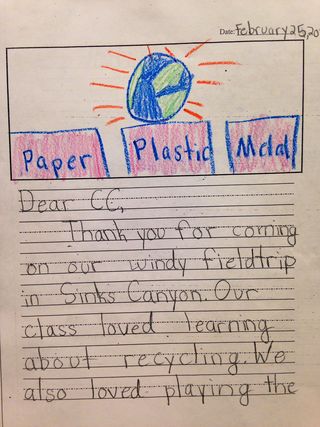 Date: February 25, 20
Paper Plastic Metal
Dear CC,
Thank you for coming
on our windy fieldtrip
in Sinks Canyon. Our
class loved learning
about recycling. We
also loved playing the